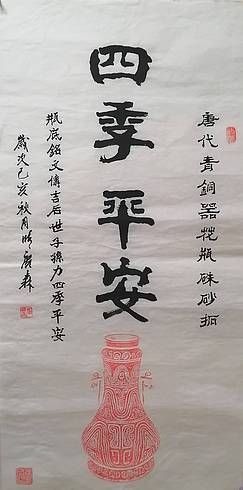 唐代青銅器花瓶硃砂拓
四季平安
瓶底銘文慎吉后世子孫力四季平安
歲次己亥秋月